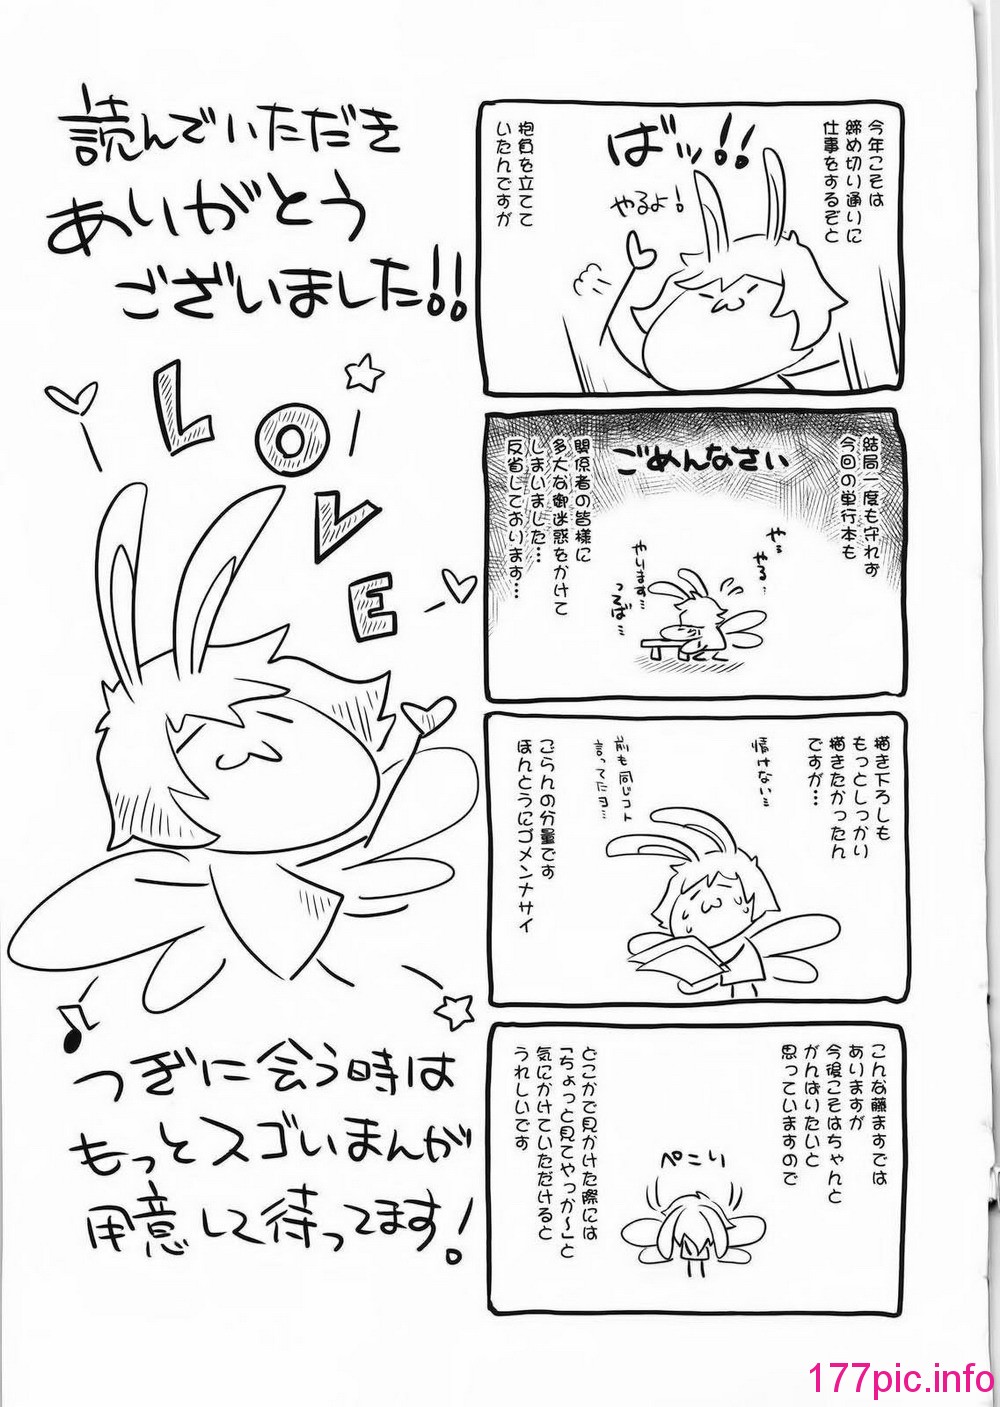 今年こそは
締め切り通りに
仕事をするぞと
ばッ!!
やるよ!
抱負を立てて
いたんですが
結局一度も守れず
今回の単行本も
ごめんなさい
関係者の皆様に
多大な御迷惑をかけて
しまいました…
反省しております…
やる…
やります…
つるぱ…
描き下ろしも
もっとしっかり
描きたかったん
ですが…
情けない…
前も同じコト
言ってたヨ…
ごらんの分量です
ほんとうにゴメンナサイ
こんな藤ますでは
ありますが
今後こそはちゃんと
がんばりたいと
思っていますので
ぺこり
どこかで見かけた際には
「ちょっと見てやっか〜」と
気にかけていただけると
うれしいです
読んでいただき
ありがとう
ございました!!
LOVE
つぎに会う時は
もっとスゴいまんが
用意して待ってます!
177pic.info